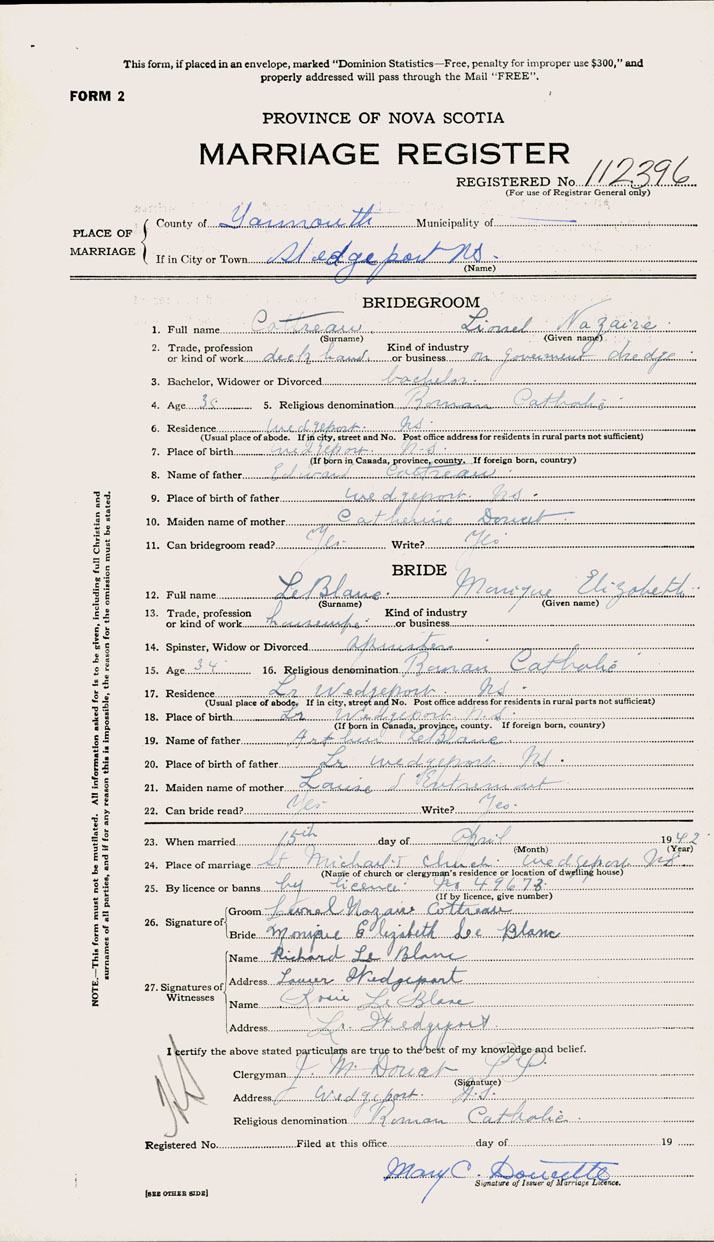 This form, if placed in an envelope, marked "Dominion Statistics—Free, penalty for improper use $300," and
properly addressed will pass through the Mail "FREE".
FORM 2
PROVINCE OF NOVA SCOTIA
MARRIAGE REGISTER
REGISTERED No. 112396
(For use of Registrar General only)
PLACE OF MARRIAGE
County of Yarmouth Municipality of
If in City or Town Wedgeport NS.
(Name)
BRIDEGROOM
1. Full name Cottreau Lionel Nazaire
(Surname) (Given name)
2. Trade, profession or kind of work deck hand. Kind of industry or business on goverment dredge
3. Bachelor, Widower or Divorced bachelor.
4. Age 5. Religious denomination Roman Catholic
6. Residence Wedgeport. NS.
(Usual place of abode. If in city, street and No. Post office address for residents in rural parts not sufficient)
7. Place of birth Wedgeport. N.S.
(If born in Canada, province, county. If foreign born, country)
8. Name of father Edward Cottreau
9. Place of birth of father Wedgeport. NS.
10. Maiden name of mother Catherine Doucet
11. Can bridegroom read? Yes. Write? Yes.
BRIDE
12. Full name LeBlanc. Monique Elizabeth
(Surname) (Given name)
13. Trade, profession or kind of work housewife. Kind of industry or business
14. Spinster, Widow or Divorced spinster
15. Age 34 16. Religious denomination Roman Catholic
17. Residence Lr Wedgeport. NS.
(Usual place of abode. If in city, street and No. Post office address for residents in rural parts not sufficient)
18. Place of birth Lr Wedgeport N.S.
(If born in Canada, province, county. If foreign born, country)
19. Name of father Arthur LeBlanc
20. Place of birth of father Lr Wedgeport NS.
21. Maiden name of mother Louise d'Entremont
22. Can bride read? Yes Write? Yes.
23. When married 15th day of April 1942
(Month) (Year)
24. Place of marriage St Michael's Church. Wedgeport NS
(Name of church or clergyman's residence or location of dwelling house)
25. By licence or banns by licence. No 49673.
(If by licence, give number)
26. Signature of
Groom Lionel Nazaire Cottreau
Bride Monique Elizabeth Le Blanc
27. Signatures of Witnesses
Name Richard Le Blanc
Address Lower Wedgeport
Name Rosie Le Blanc
Address Lr. Wedgeport.
I certify the above stated particulars are true to the best of my knowledge and belief.
Clergyman J. M. Doucet P.P.
(Signature)
Address Wedgeport. N.S.
Religious denomination Roman Catholic.
Registered No. Filed at this office day of 19
Mary C. Doucette
Signature of Issuer of Marriage Licence.
[SEE OTHER SIDE]
NOTE.—This form must not be mutilated. All information asked for is to be given, including full Christian and
surnames of all parties, and if for any reason this is impossible, the reason for the omission must be stated.